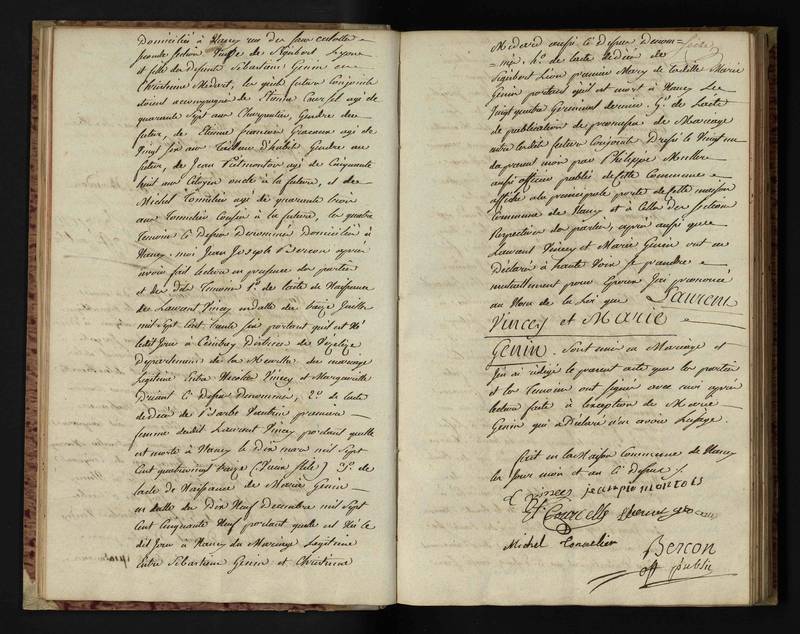 Domiciliés à Nancy rue des sans culotte
seconde section Veuve de Sigisbert Lyonne
et fille des defunts Sébastien Genin et
Christienne Médart, lesquels futurs Conjoints
étoient accompagné de Etienne Courcel agé de
quarante Sept ans Charpentier, Gendre du
futur, de Etienne francois Graceau agé de
Vingt six ans Tailleur d'habit Gendre du
futur, de Jean Piémontois agé de Cinquante
huit ans Citoyen oncle à la future, et de
Michel Tonnelier agé de quarante trois
ans Tonnelier Cousin à la future, les quatre
Temoins Ci dessus Denommés Domiciliés à
Nancy. moi Jean Joseph Bercon après
avoir fait lecture en presence des parties
et des dits Temoins 1.° de l'acte de Naissance
de Laurent Vincey en datte du treize Juillet
mil Sept Cent trente six portant qu'il est Né
ledit Jour à District de Vezelize
Departement de la Meurthe du mariage
Legitime Entre Nicolas Vincey et Marguerite
Ci dessus Denommés, 2.° de l'acte
de décès de Barbe premiere
femme dudit Laurent Vincey portant quelle
est morte à Nancy le Dix mars mil Sept
Cent quatrevingt treize (Vieux stile) 3.° de
l'acte de Naissance de Marie Genin
en datte du Dix Neuf Decembre mil Sept
Cent Cinquante Neuf portant quelle est Née le
dit Jour à Nancy du Mariage Legitime
Entre Sébastien Genin et Christienne
Médard aussi Ci dessus Denom=
=més. 4.° de l'acte de décès de
Sigisbert Leonne premier Mary de ladite Marie
Genin portant qu'il est mort à Nancy Le
Vingt quatre Germinal dernier. 5.° de l'acte
de publication de promesse de Mariage
entre lesdits futurs Conjoints Dressé le Vingt un
du present mois par Philippe Muller
aussi officier public de cette Commune et
affiché à la principale porte de cette maison
Commune de Nancy et à celles des sections
Respectives des parties, après aussi que
Laurent Vincey et Marie Genin ont eu
Déclaré à haute Voix se prendre
mutuellement pour Epoux J'ai prononcé
au Nom de la Loi que Laurent
Vincey et Marie
Genin. Sont unis en Mariage et
j'en ai rédigé le present acte que les parties
et les Temoins ont signés avec moi après
lecture faite à l'exception de Marie
Genin qui a Déclaré n'en avoir l'usage.
fait en la Maison Commune de Nancy
les Jour mois et an Ci dessus.
Vincey jean piemontois
Courcelle
Michel Tonnellier
Bercon
off public